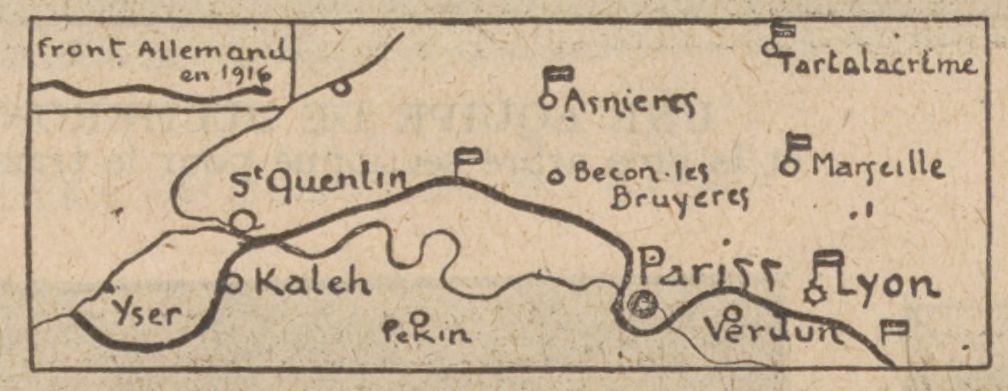 Front Allemand
en 1916
Tartalacrème
Asnieres
St Quentin
Becon-les
Bruyeres
Marseille
Kaleh
Pariss
Lyon
Yser
Pekin
Verdun